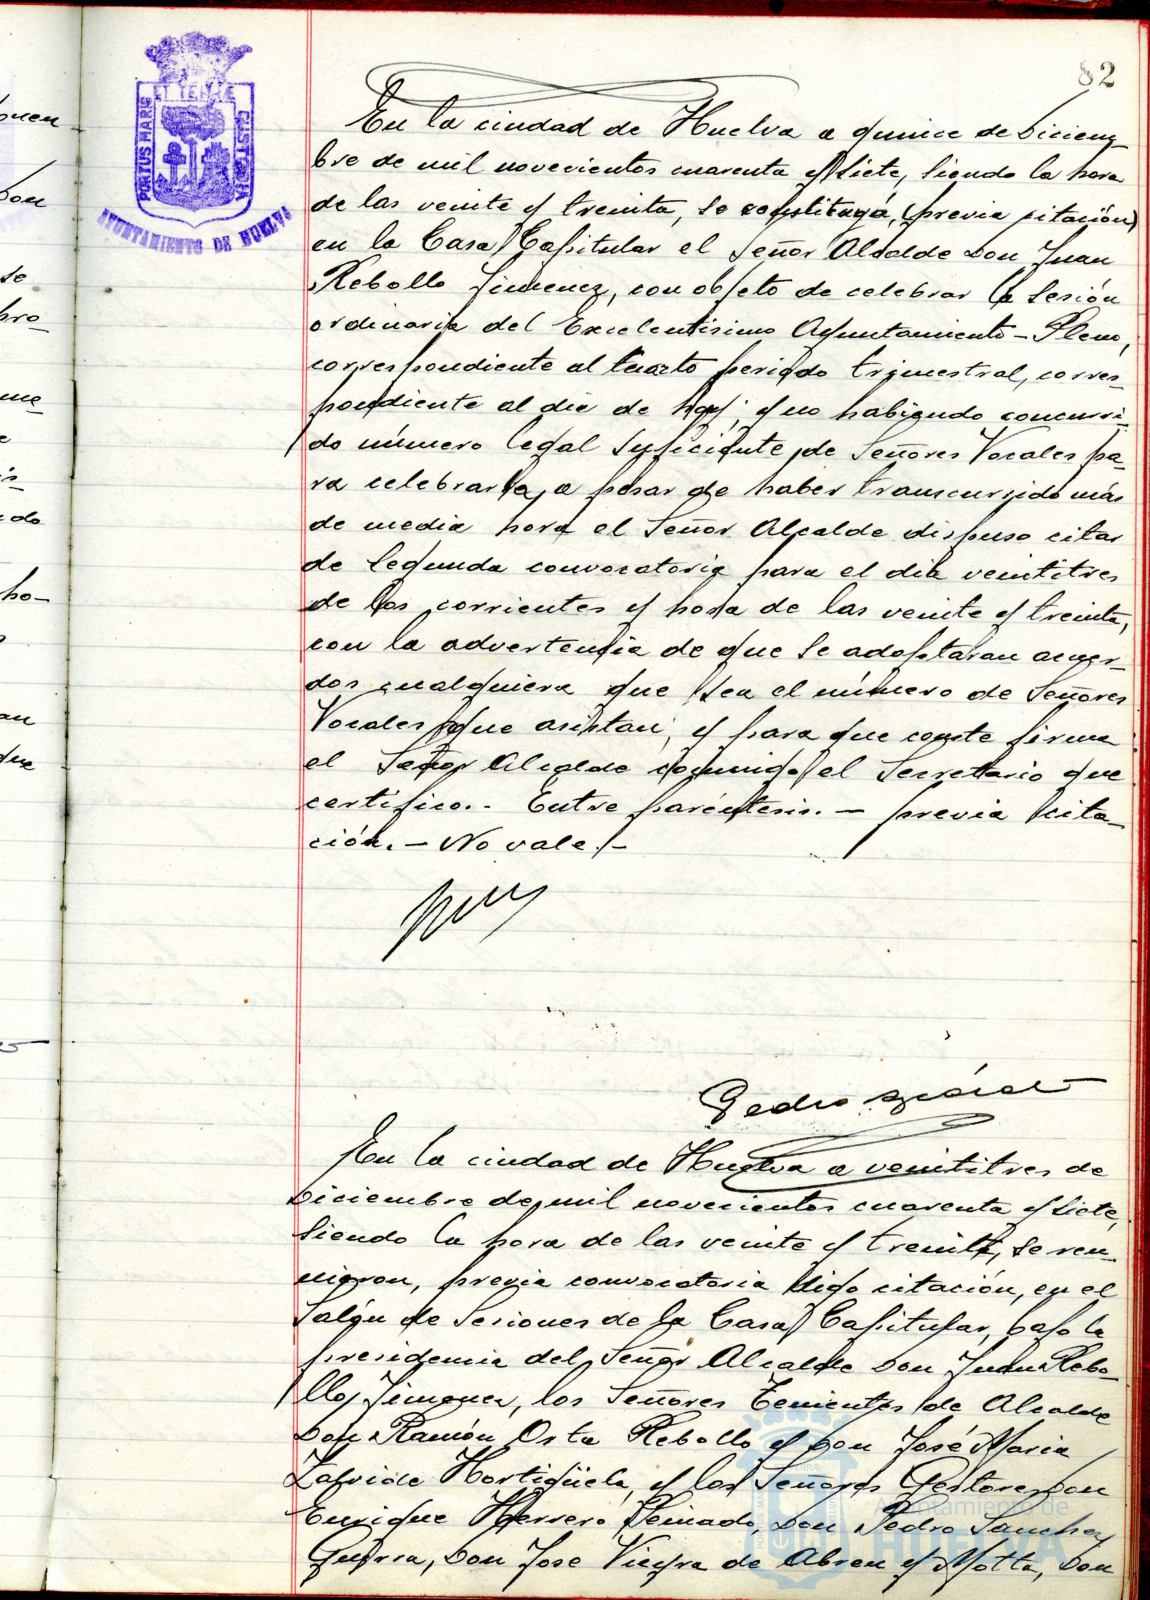 82
PORTUS MARIS ET TERRE CUSTODIA
AYUNTAMIENTO DE HUELVA
En la ciudad de Huelva a quince de Diciem
bre de mil novecientos cuarenta y siete, siendo la hora
de las veinte y treinta, se constituyó, (previa citación)
en la Casa Capitular el Señor Alcalde Don Juan
Rebollo Jimenez, con objeto de celebrar la sesión
ordinaria del Excelentisimo Ayuntamiento-Pleno,
correspondiente al cuarto periodo trimestral, corres-
pondiente al dia de hoy; y no habiendo concurri-
do número legal suficiente de Señores Vocales pa-
ra celebrarla, a pesar de haber transcurrido más
de media hora el Señor Alcalde dispuso citar
de segunda convocatoria para el dia veintitres
de los corrientes y hora de las veinte y treinta,
con la advertencia de que se adoptaran acuer-
dos cualquiera que sea el número de Señores
Vocales que asistan; y para que conste firma
el Señor Alcalde conmigo el Secretario que
certifico.- Entre paréntesis.- previa cita-
ción.- No vale.-
Pedro
En la ciudad de Huelva a veintitres de
Diciembre de mil novecientos cuarenta y siete,
siendo la hora de las veinte y treinta, se reu-
nieron, previa convocatoria digo citación, en el
Salón de Sesiones de la Casa Capitular, bajo la
presidencia del Señor Alcalde Don Juan Rebo-
llo Jimenez, los Señores Tenientes de Alcalde
Don Ramón Orta Rebollo y Don José Maria
Zafride Hortigüela, y los Señores Gestores Don
Enrique Herrero Peinado, Don Pedro Sanchez
Guerra, Don Jose Vieyra de Abreu y Motta, Don
Ayuntamiento de
HUELVA